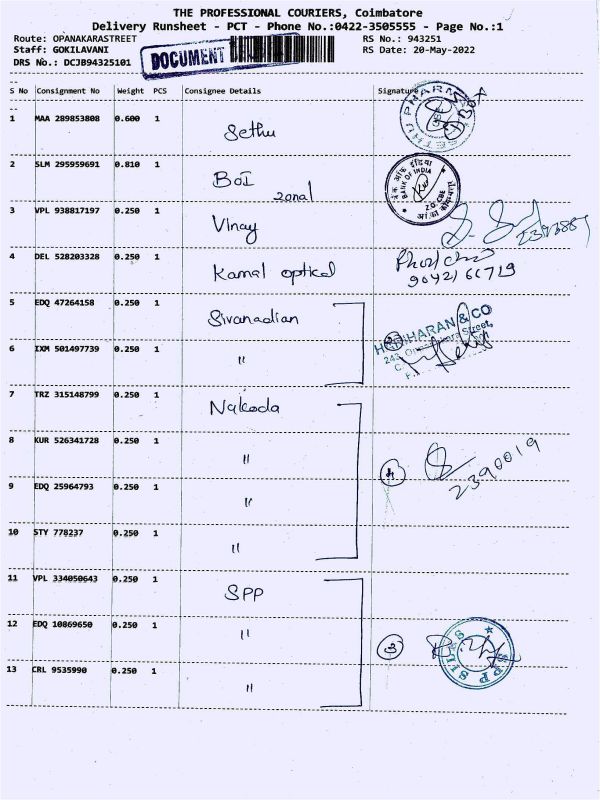 THE PROFESSIONAL COURIERS, Coimbatore
Delivery Runsheet - PCT - Phone No.:0422-3505555 - Page No.:1
Route: OPANAKARASTREET RS No.: 943251
Staff: GOKILAVANI RS Date: 20-May-2022
DRS No.: DCJB94325101
DOCUMENT
S No Consignment No Weight PCS Consignee Details Signature
1 MAA 289853808 0.600 1 Sethu
2 SLM 295959691 0.810 1 BOI zonal
BANK OF INDIA
Z.O. CBE
3 VPL 938817197 0.250 1 Vinay
4 DEL 528203328 0.250 1 Kamal optical 9042166719
5 EDQ 47264158 0.250 1 Sivanadian
HARIHARAN & CO
6 IXM 501497739 0.250 1 "
7 TRZ 315148799 0.250 1 Nakoda
8 KUR 526341728 0.250 1 " 4 2390019
9 EDQ 25964793 0.250 1 "
10 STY 778237 0.250 1 "
11 VPL 334050643 0.250 1 SPP
12 EDQ 10869650 0.250 1 " 3
SPP SILKS
13 CRL 9535990 0.250 1 "